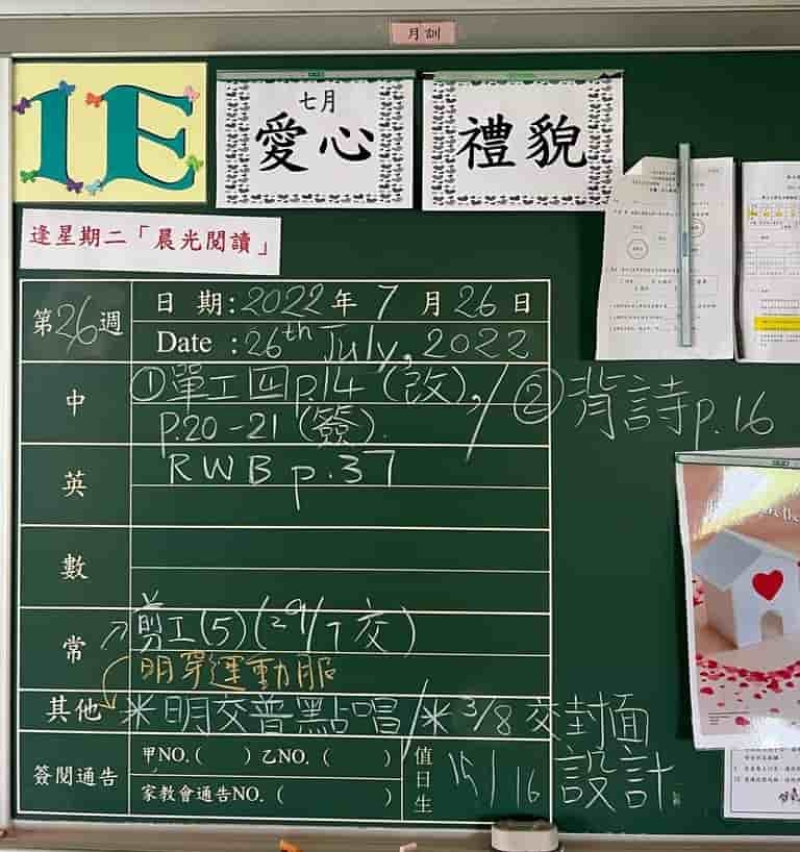 月訓
1E
七月
愛心
禮貌
逢星期二「晨光閱讀」
第26週
日 期:2022年 7 月 26 日
Date :26th July, 2022
中
①單工四p.14 (改), / ②背詩p.16
p.20-21 (簽).
英
RWB p.37
數
常
剪工(5)(29/7交)
明穿運動服
其他
*明交普點唱/*3/8交封面
設計
簽閱通告
甲NO.( )乙NO. ( )
家教會通告NO. ( )
值日生
15/16